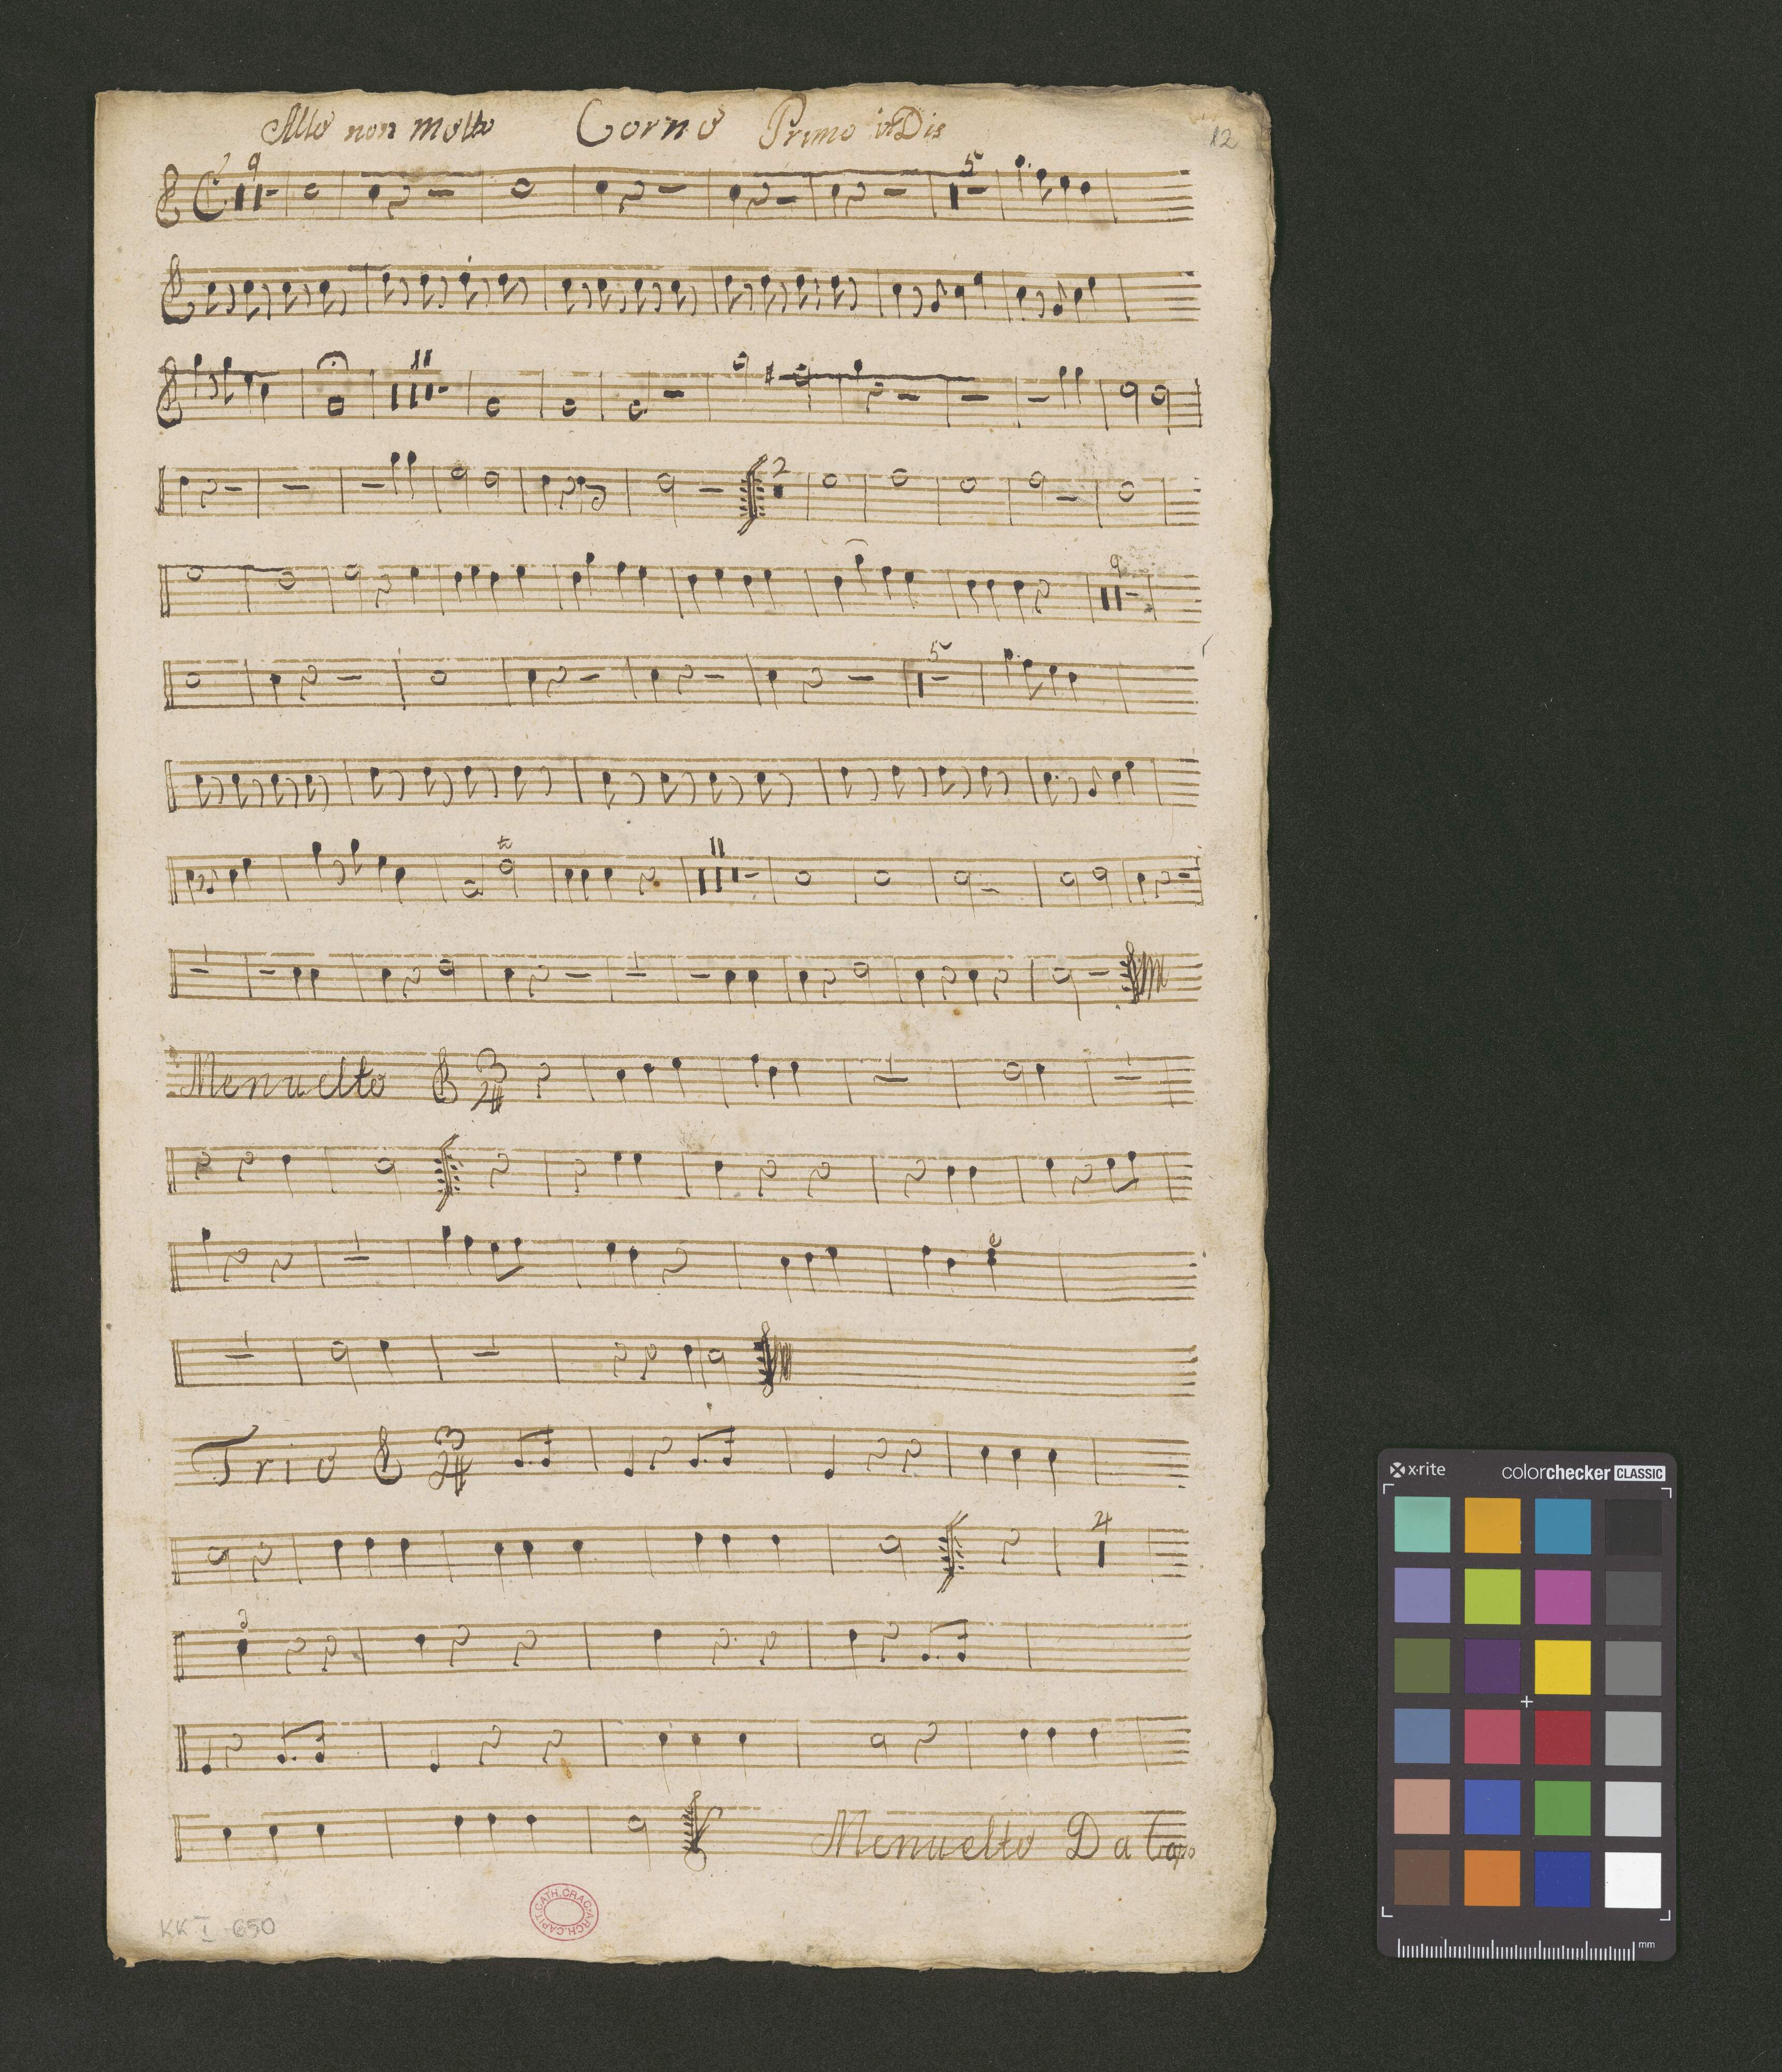 All⁰ non molto Corno Primo in Dis
12
9
5
11
2
9
5
tr
11
Menuetto 3/4
Trio 3/4
4
Menuetto Da Capo
KK I 650
ARCH. CAPIT. CATH. CRAC.
x·rite colorchecker CLASSIC
mm